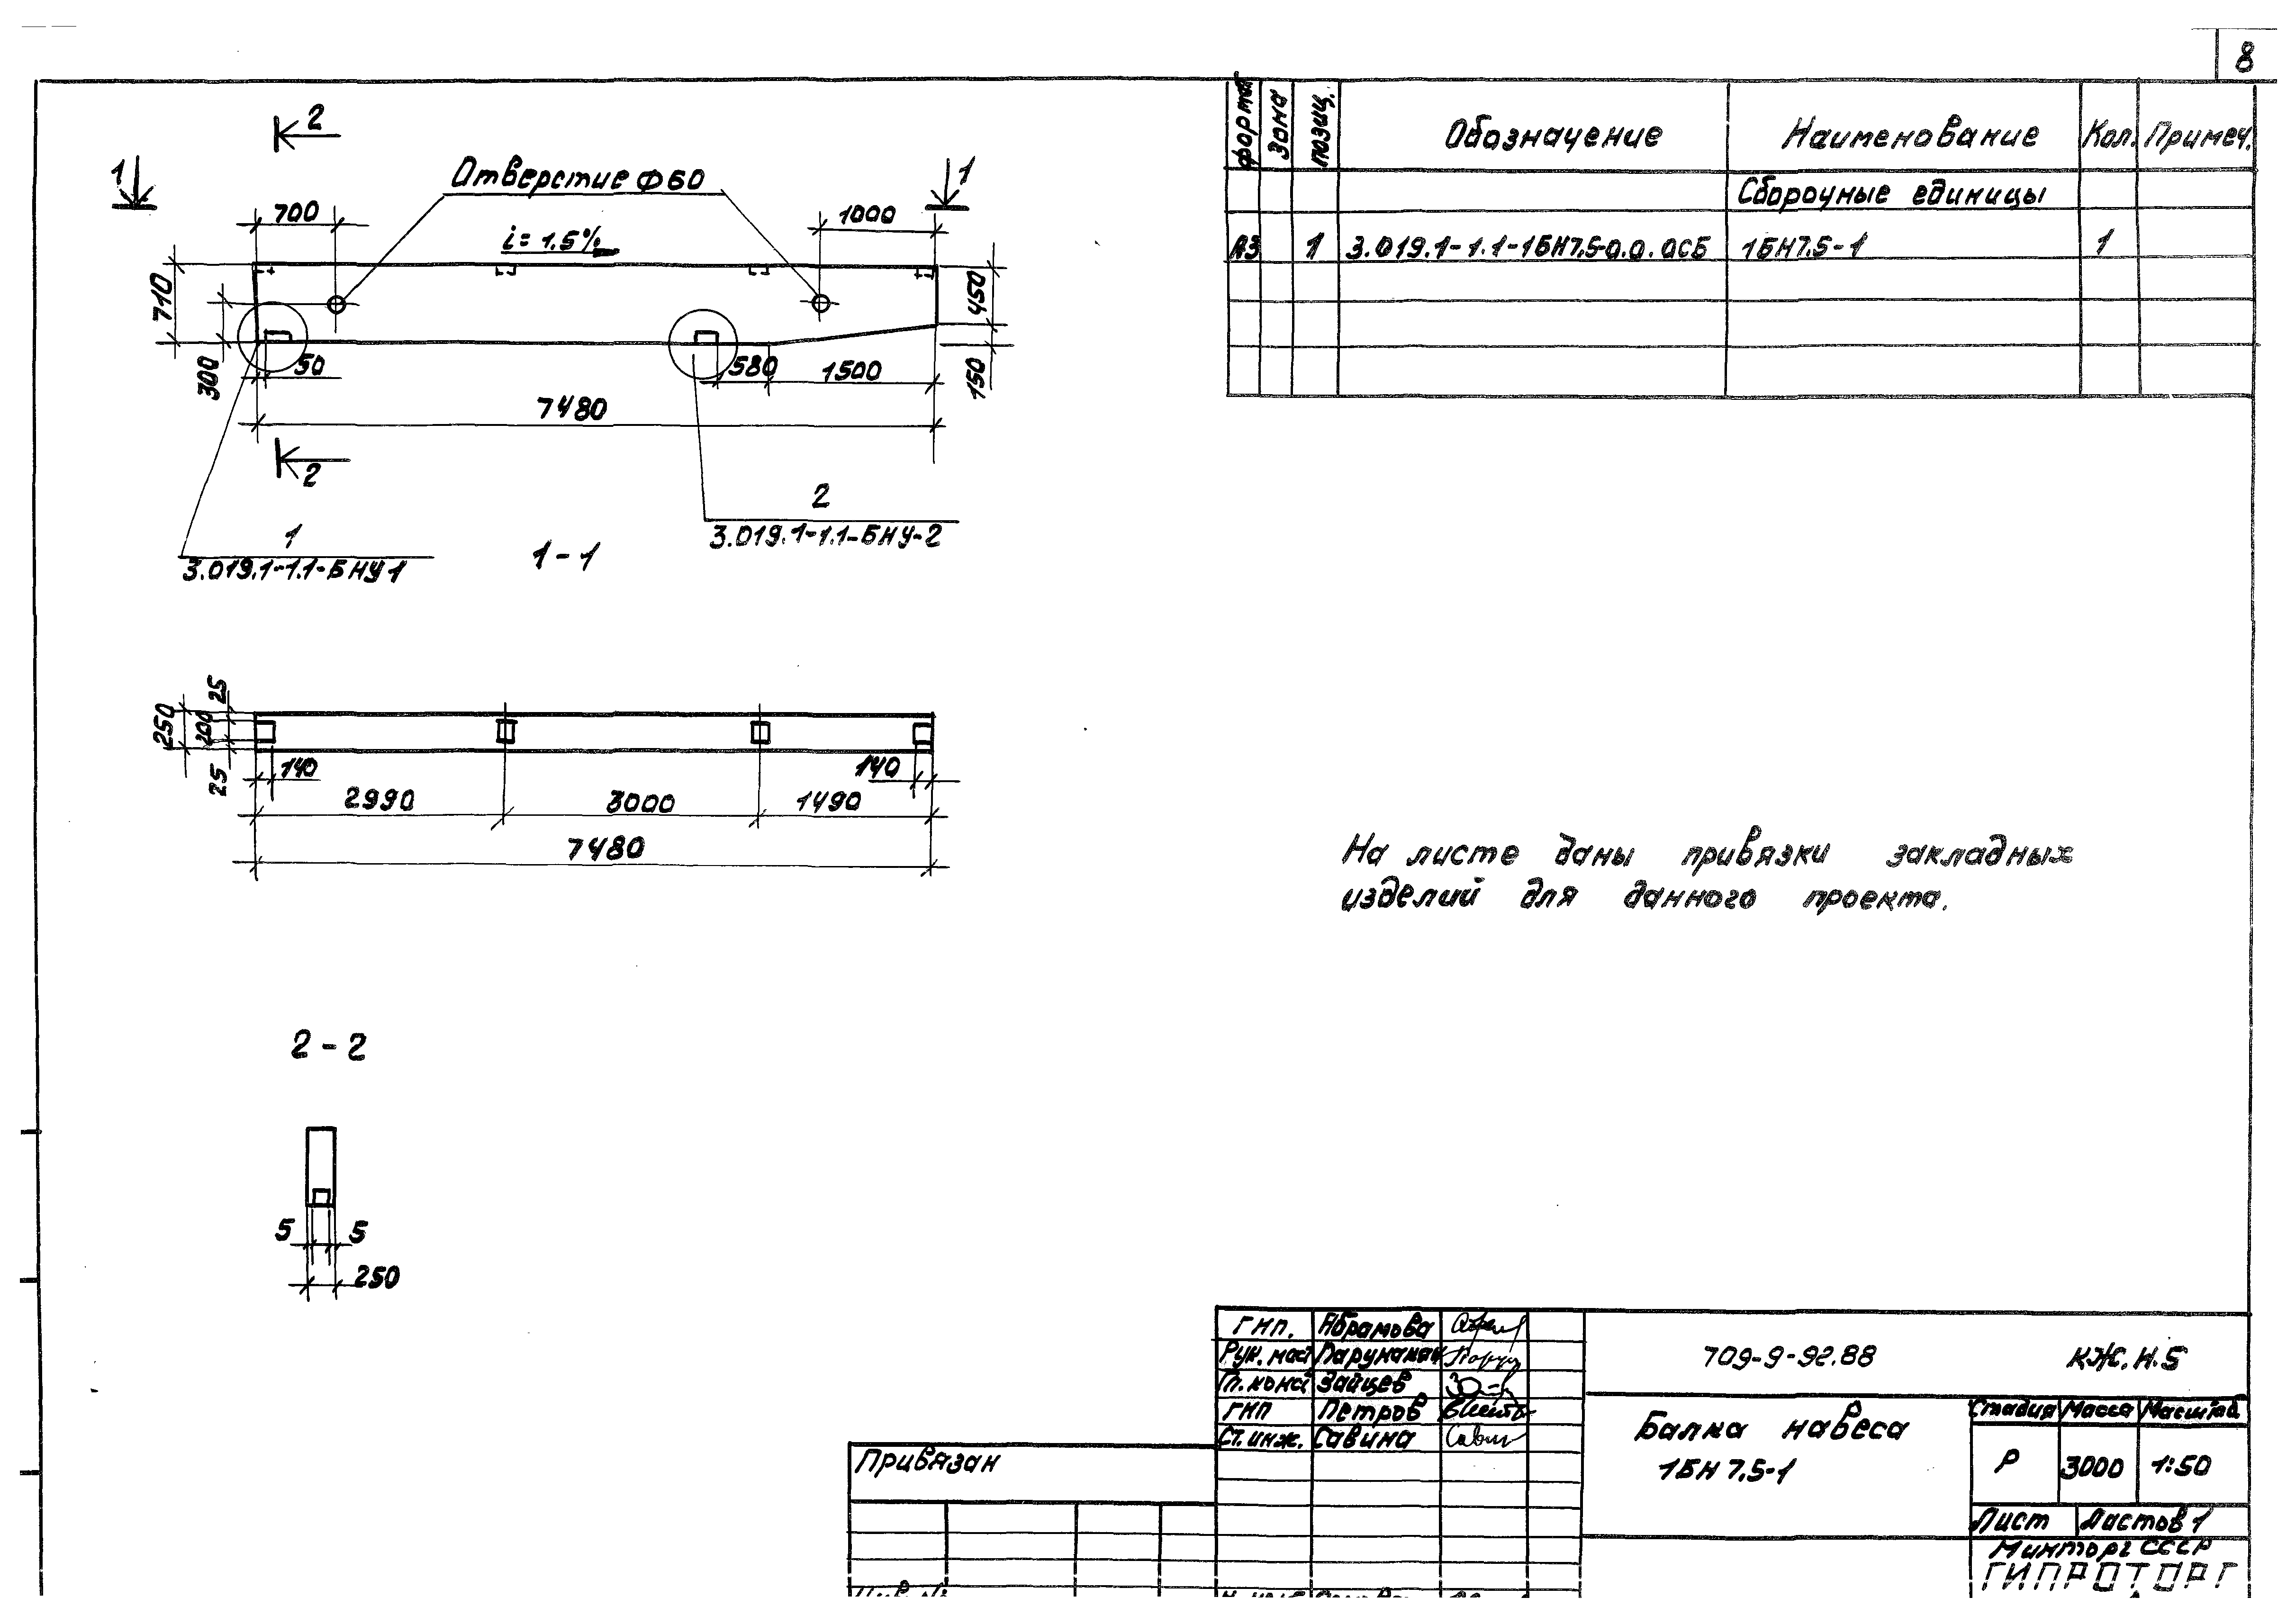 8
2
1
Отверстие Ф60
1
700
1000
i= 1.5%
710
450
300
50
580
1500
150
7480
2
2
3.019.1-1.1-БНУ-2
1
3.019.1-1.1-БНУ1
1-1
25
250
200
25
140
140
2990
3000
1490
7480
2-2
5
5
250
формат Зона позиц. Обозначение Наименование Кол. Примеч.
Сборочные единицы
А3 1 3.019.1-1.1-1БН7.5-0.0.0СБ 1БН7.5-1 1
На листе даны привязки закладных
изделий для данного проекта.
Привязан
ГИП. Абрамова
Рук. маст
Гл. конст Зайцев
ГИП Петров
Ст. инж. Савина
709-9-92.88 КЖ.И.5
Балка навеса
1БН7.5-1
Стадия Масса Масштаб
Р 3000 1:50
Лист Листов 1
Минторг СССР
ГИПРОТОРГ